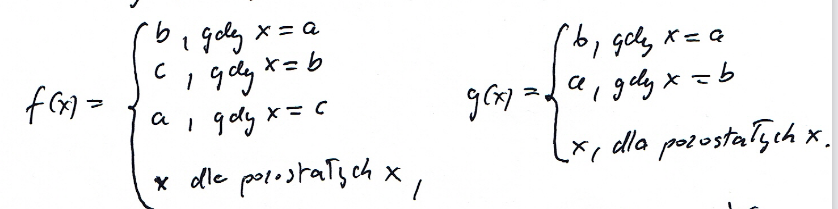 f(x) = { b, gdy x = a
c, gdy x = b
a, gdy x = c
x dla pozostałych x,
g(x) = { b, gdy x = a
a, gdy x = b
x, dla pozostałych x.